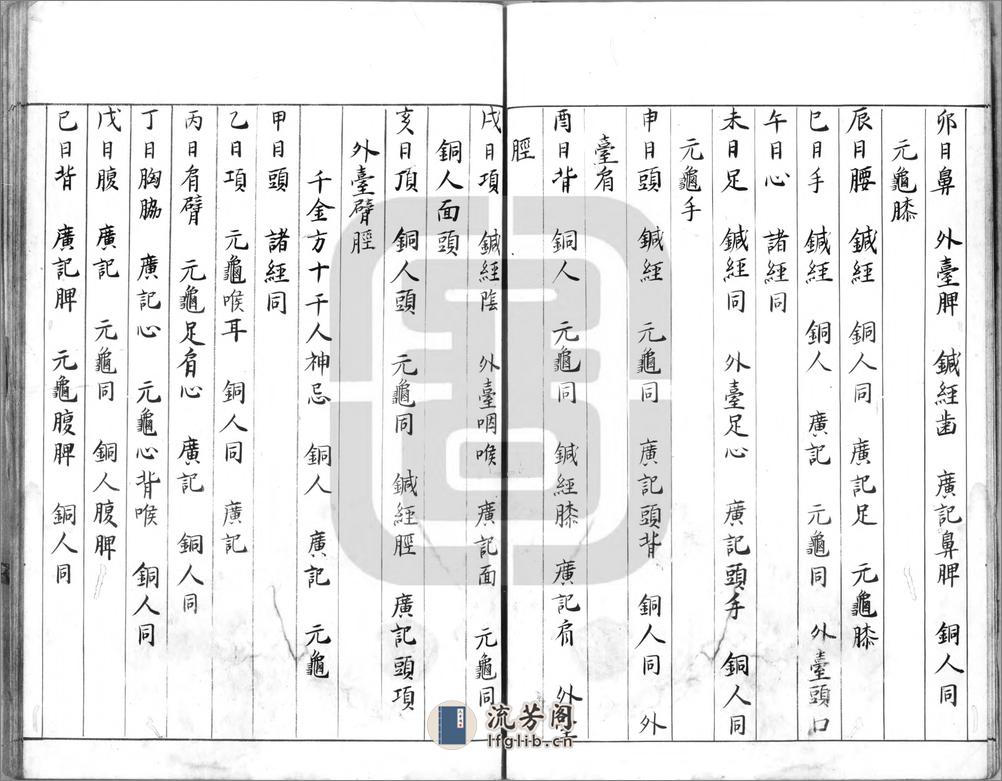 卯日鼻　外臺脾　鍼經齒　廣記鼻脾　銅人同
元龜膝
辰日腰　鍼經　銅人同　廣記足　元龜膝
巳日手　鍼經　銅人　廣記　元龜同　外臺頭口
午日心　諸經同
未日足　鍼經同　外臺足心　廣記頭手　銅人同
元龜手
申日頭　鍼經　元龜同　廣記頭背　銅人同　外
臺肩
酉日背　銅人　元龜同　鍼經膝　廣記肩　外臺
脛
戌日項　鍼經陰　外臺咽喉　廣記面　元龜同
銅人面頭
亥日頂　銅人頭　元龜同　鍼經脛　廣記頭項
外臺臂脛
千金方十干人神忌　銅人　廣記　元龜
甲日頭　諸經同
乙日項　元龜喉耳　銅人同　廣記
丙日肩臂　元龜足肩心　廣記　銅人同
丁日胸脇　廣記心　元龜心背喉　銅人同
戊日腹　廣記　元龜同　銅人腹脾
已日背　廣記脾　元龜腹脾　銅人同
流芳阁
lfglib.cn